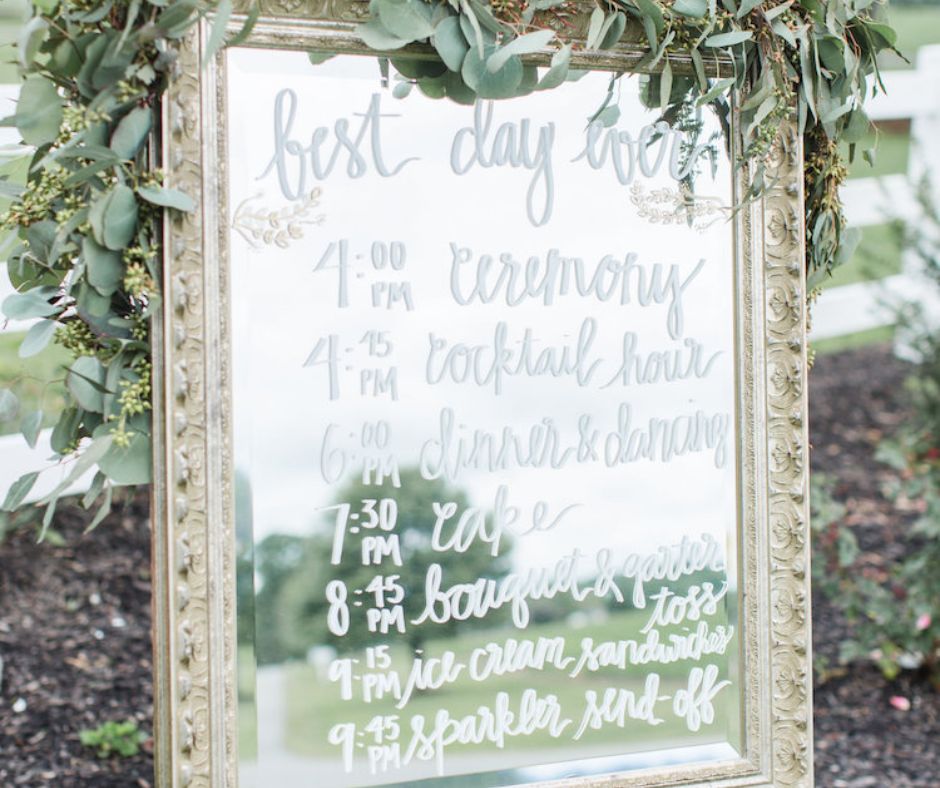 best day ever
4:00 PM ceremony
4:45 PM cocktail hour
6:00 PM dinner & dancing
7:30 PM cake
8:45 PM bouquet & garter
toss
9:15 PM ice cream sandwiches
9:45 PM sparkler send-off